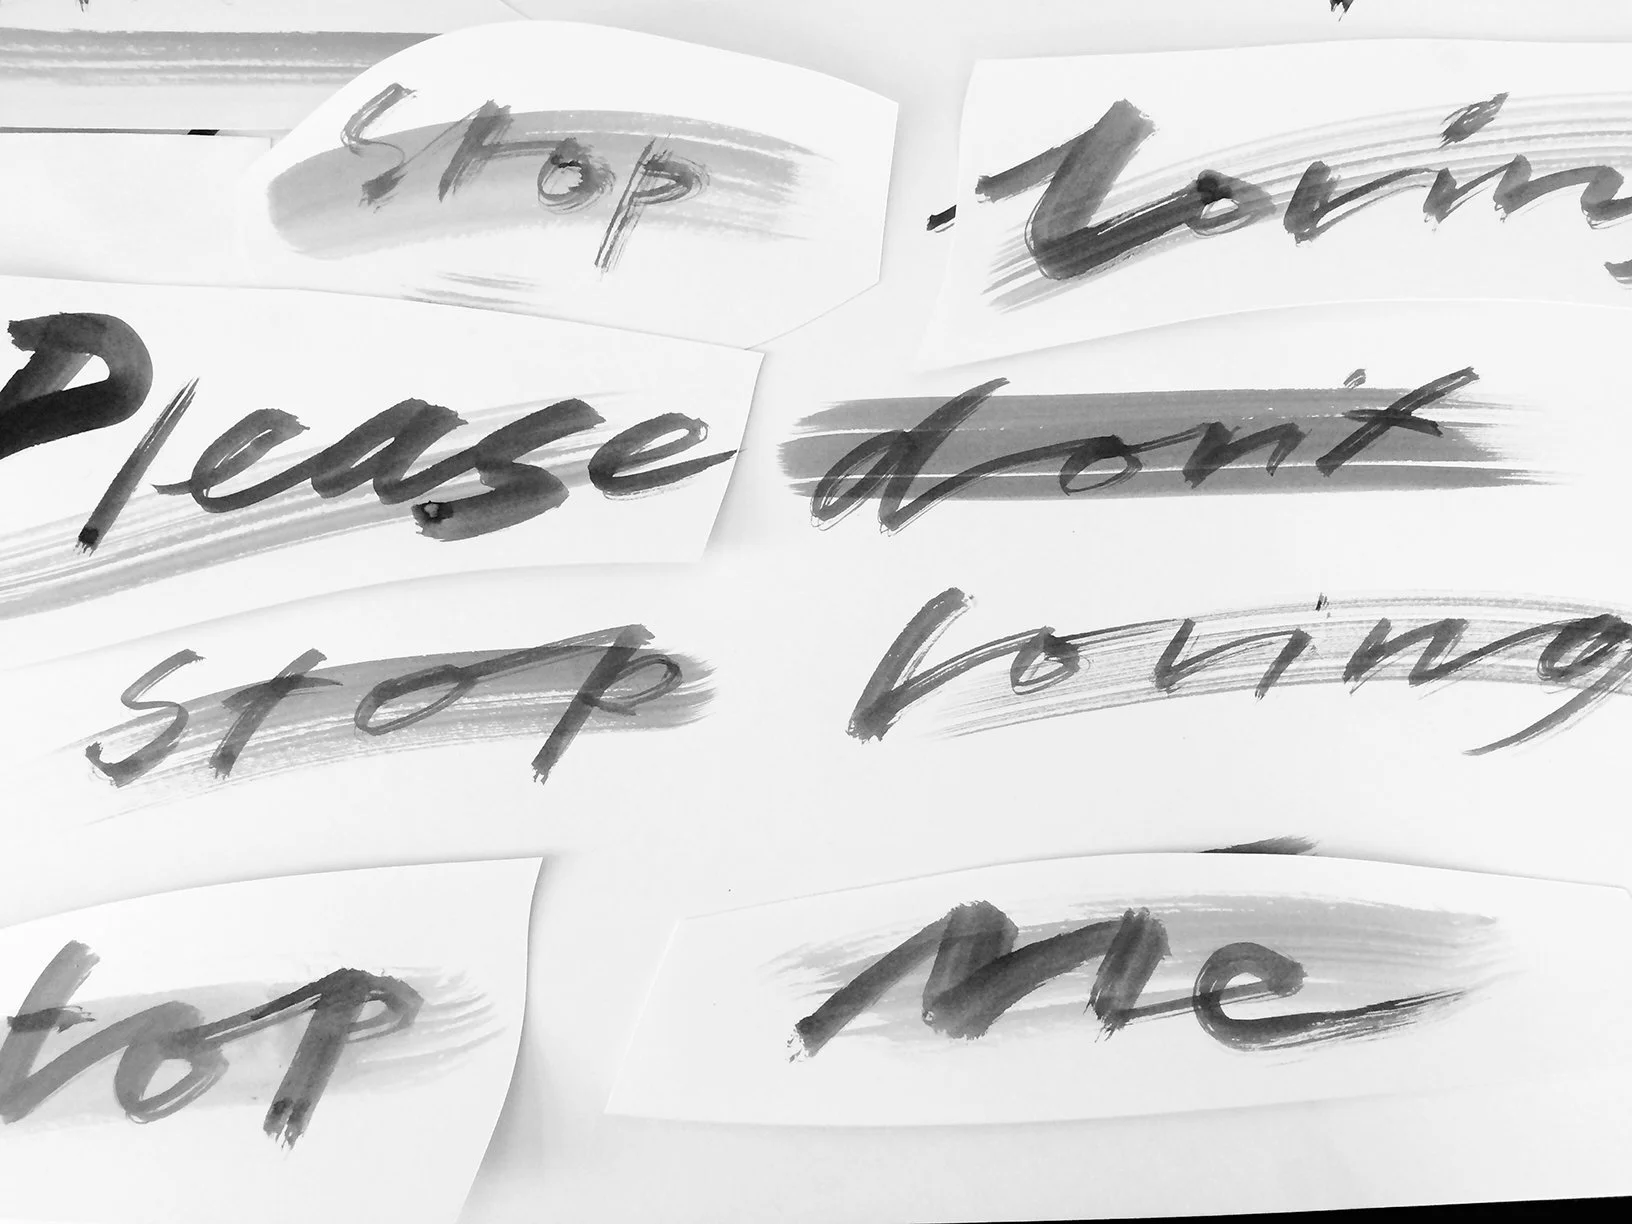 Stop Loving
Please don't
stop Loving
top Me